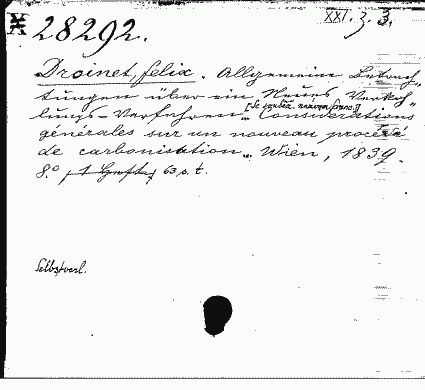 28292. XXI. z. 3.
Droinet, felix. Allgemeine Betrach-
tungen über ein Neues Verkoh-
lungs-Verfahren... Considerations
générales sur un nouveau procédé
de carbonisation... Wien, 1839.
8.° 63 s. t.
Selbstverl.